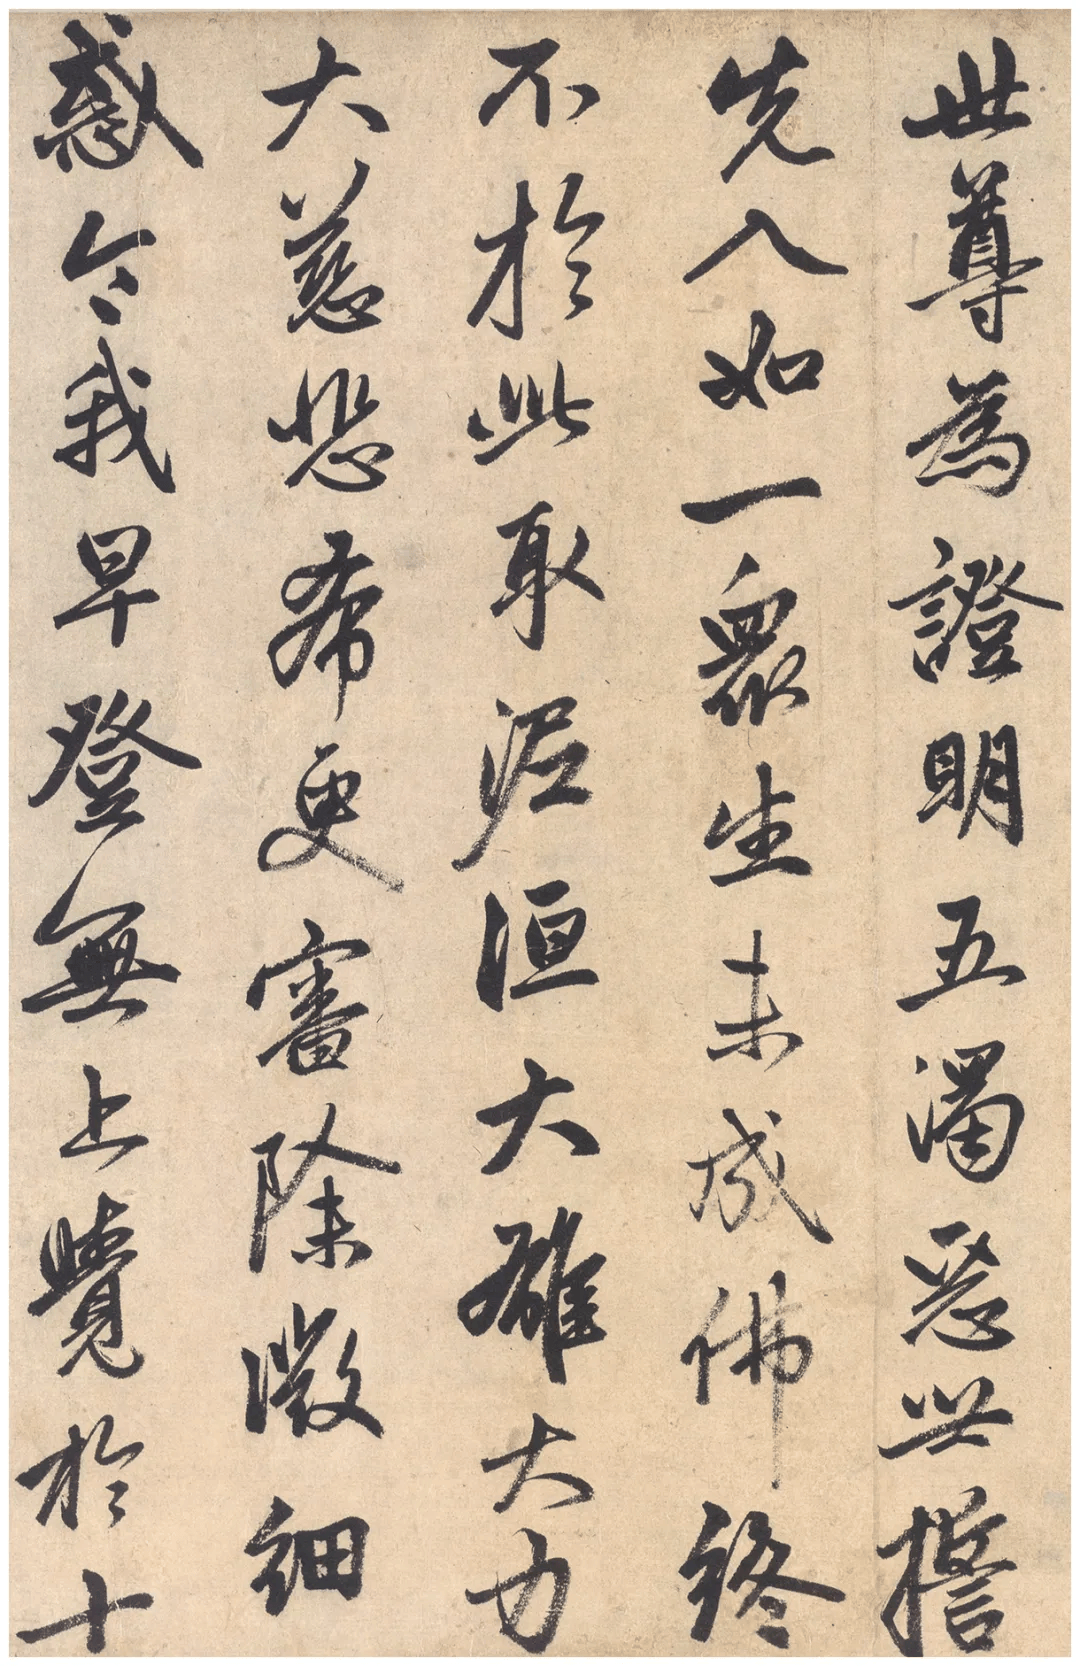 世尊為證明五濁惡世誓
先入如一衆生未成佛終
不於此取泥洹大雄大力
大慈悲希更審除微細
惑令我早登無上覺於十